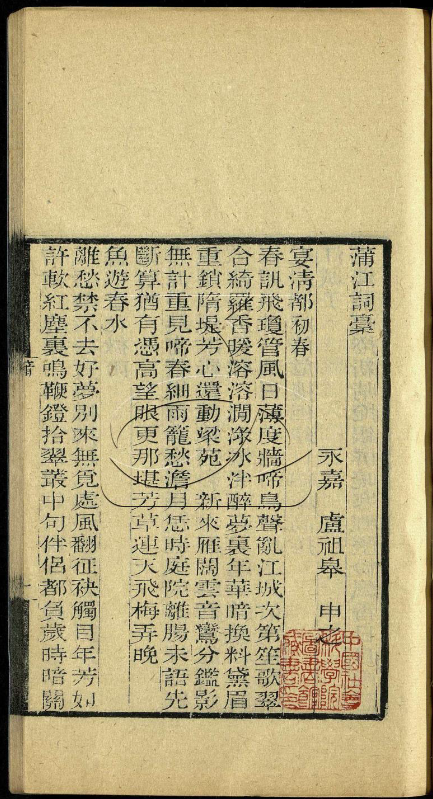 蒲江詞藁
永嘉 盧祖皋 申之
宴清都 初春
春訊飛瓊管風日薄度牆啼鳥聲亂江城次第笙歌翠
合綺羅香暖溶溶澗淥冰泮醉夢裏年華暗換料黛眉
重鎖隋堤芳心還動梁苑 新來雁闊雲音鸞分鑑影
無計重見啼春細雨籠愁澹月恁時庭院離腸未語先
斷算猶有憑高望眼更那堪芳草連天飛梅弄晚
魚遊春水
離愁禁不去好夢別來無覓處風翻征袂觸目年芳如
許軟紅塵裏鳴鞭鐙拾翠叢中句伴侶都負歲時暗關
中國社會
科學院
圖書館
藏書